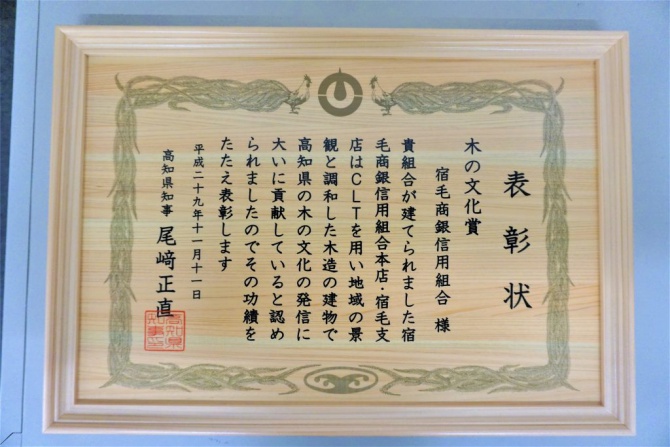 表彰状
木の文化賞
宿毛商銀信用組合 様
貴組合が建てられました宿
毛商銀信用組合本店・宿毛支
店はCLTを用い地域の景
観と調和した木造の建物で
高知県の木の文化の発信に
大いに貢献していると認め
られましたのでその功績を
たたえ表彰します
平成二十九年十一月十一日
高知県知事 尾﨑正直
高知県
知事印